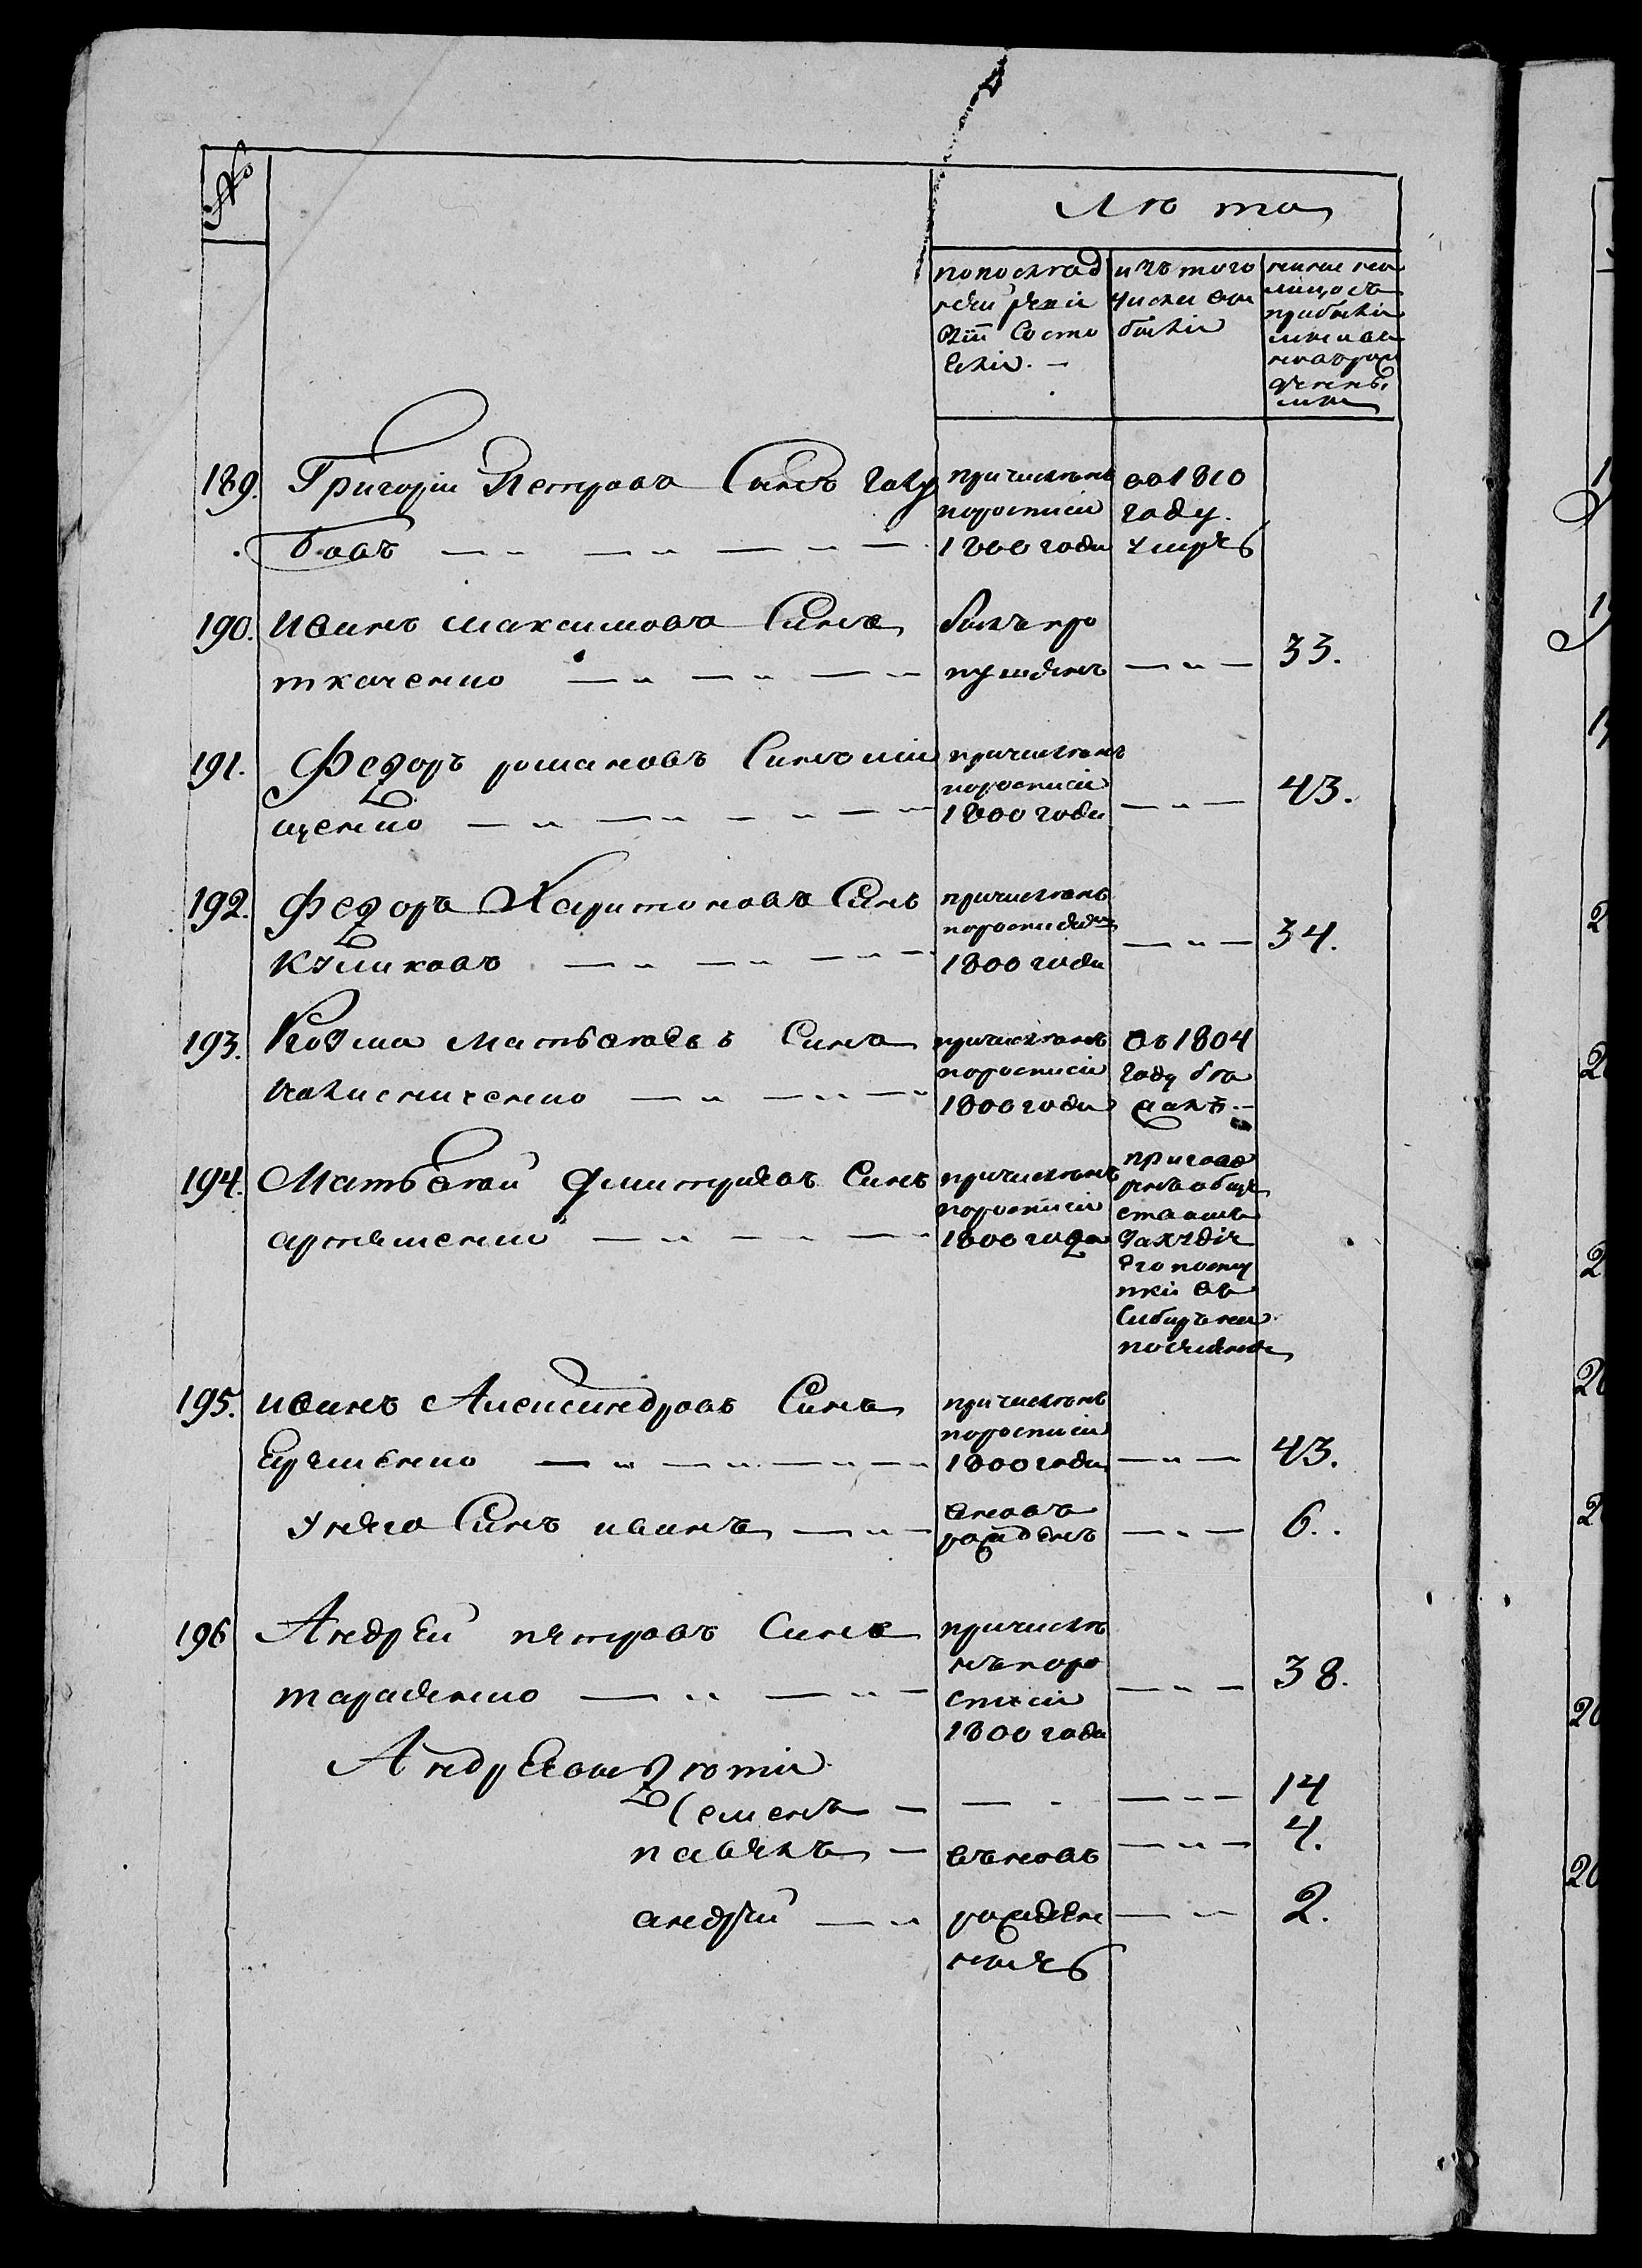 №
Лѣта
попослед
ней ревизіи
состо
яли. —
изъ того
числа вы
были
ныне на
лицо съ
прибылы
ми и вно
ворож
денны
ми
189. Григорій Петровъ Сынъ Голу
бовъ
причисленъ
поросписи
1800 года
въ 1810
году
умре
190. Иванъ Максимовъ Сынъ
ткаченко
былъ про
пущенъ
33.
191. Федоръ романовъ Сынъ
щенко
причисленъ
поросписи
1800 года
43.
192. Федоръ Харитоновъ Сынъ
Куликовъ
причисленъ
поросписи
1800 года
34.
193. Козма Матвѣевъ Сынъ
причисленъ
поросписи
1800 года
въ 1804
году бѣ
жалъ. —
194. Матвѣй Дмитріевъ Сынъ
артеменко
причисленъ
поросписи
1800 года
пригово
ромъ обще
ства
за худіе
его посту
пки въ
Сибирь на
поселение
195. иванъ Александровъ Сынъ
Еременко
причисленъ
поросписи
1800 года
43.
У него Сынъ иванъ
вновъ
рожденъ
6.
196 Андрей петровъ Сынъ
тарасенко
причисле
нъ поро
списи
1800 года
38.
Андреевы дети
Семенъ
14
павелъ
4.
андрей
2.
вновъ
рожден
ные